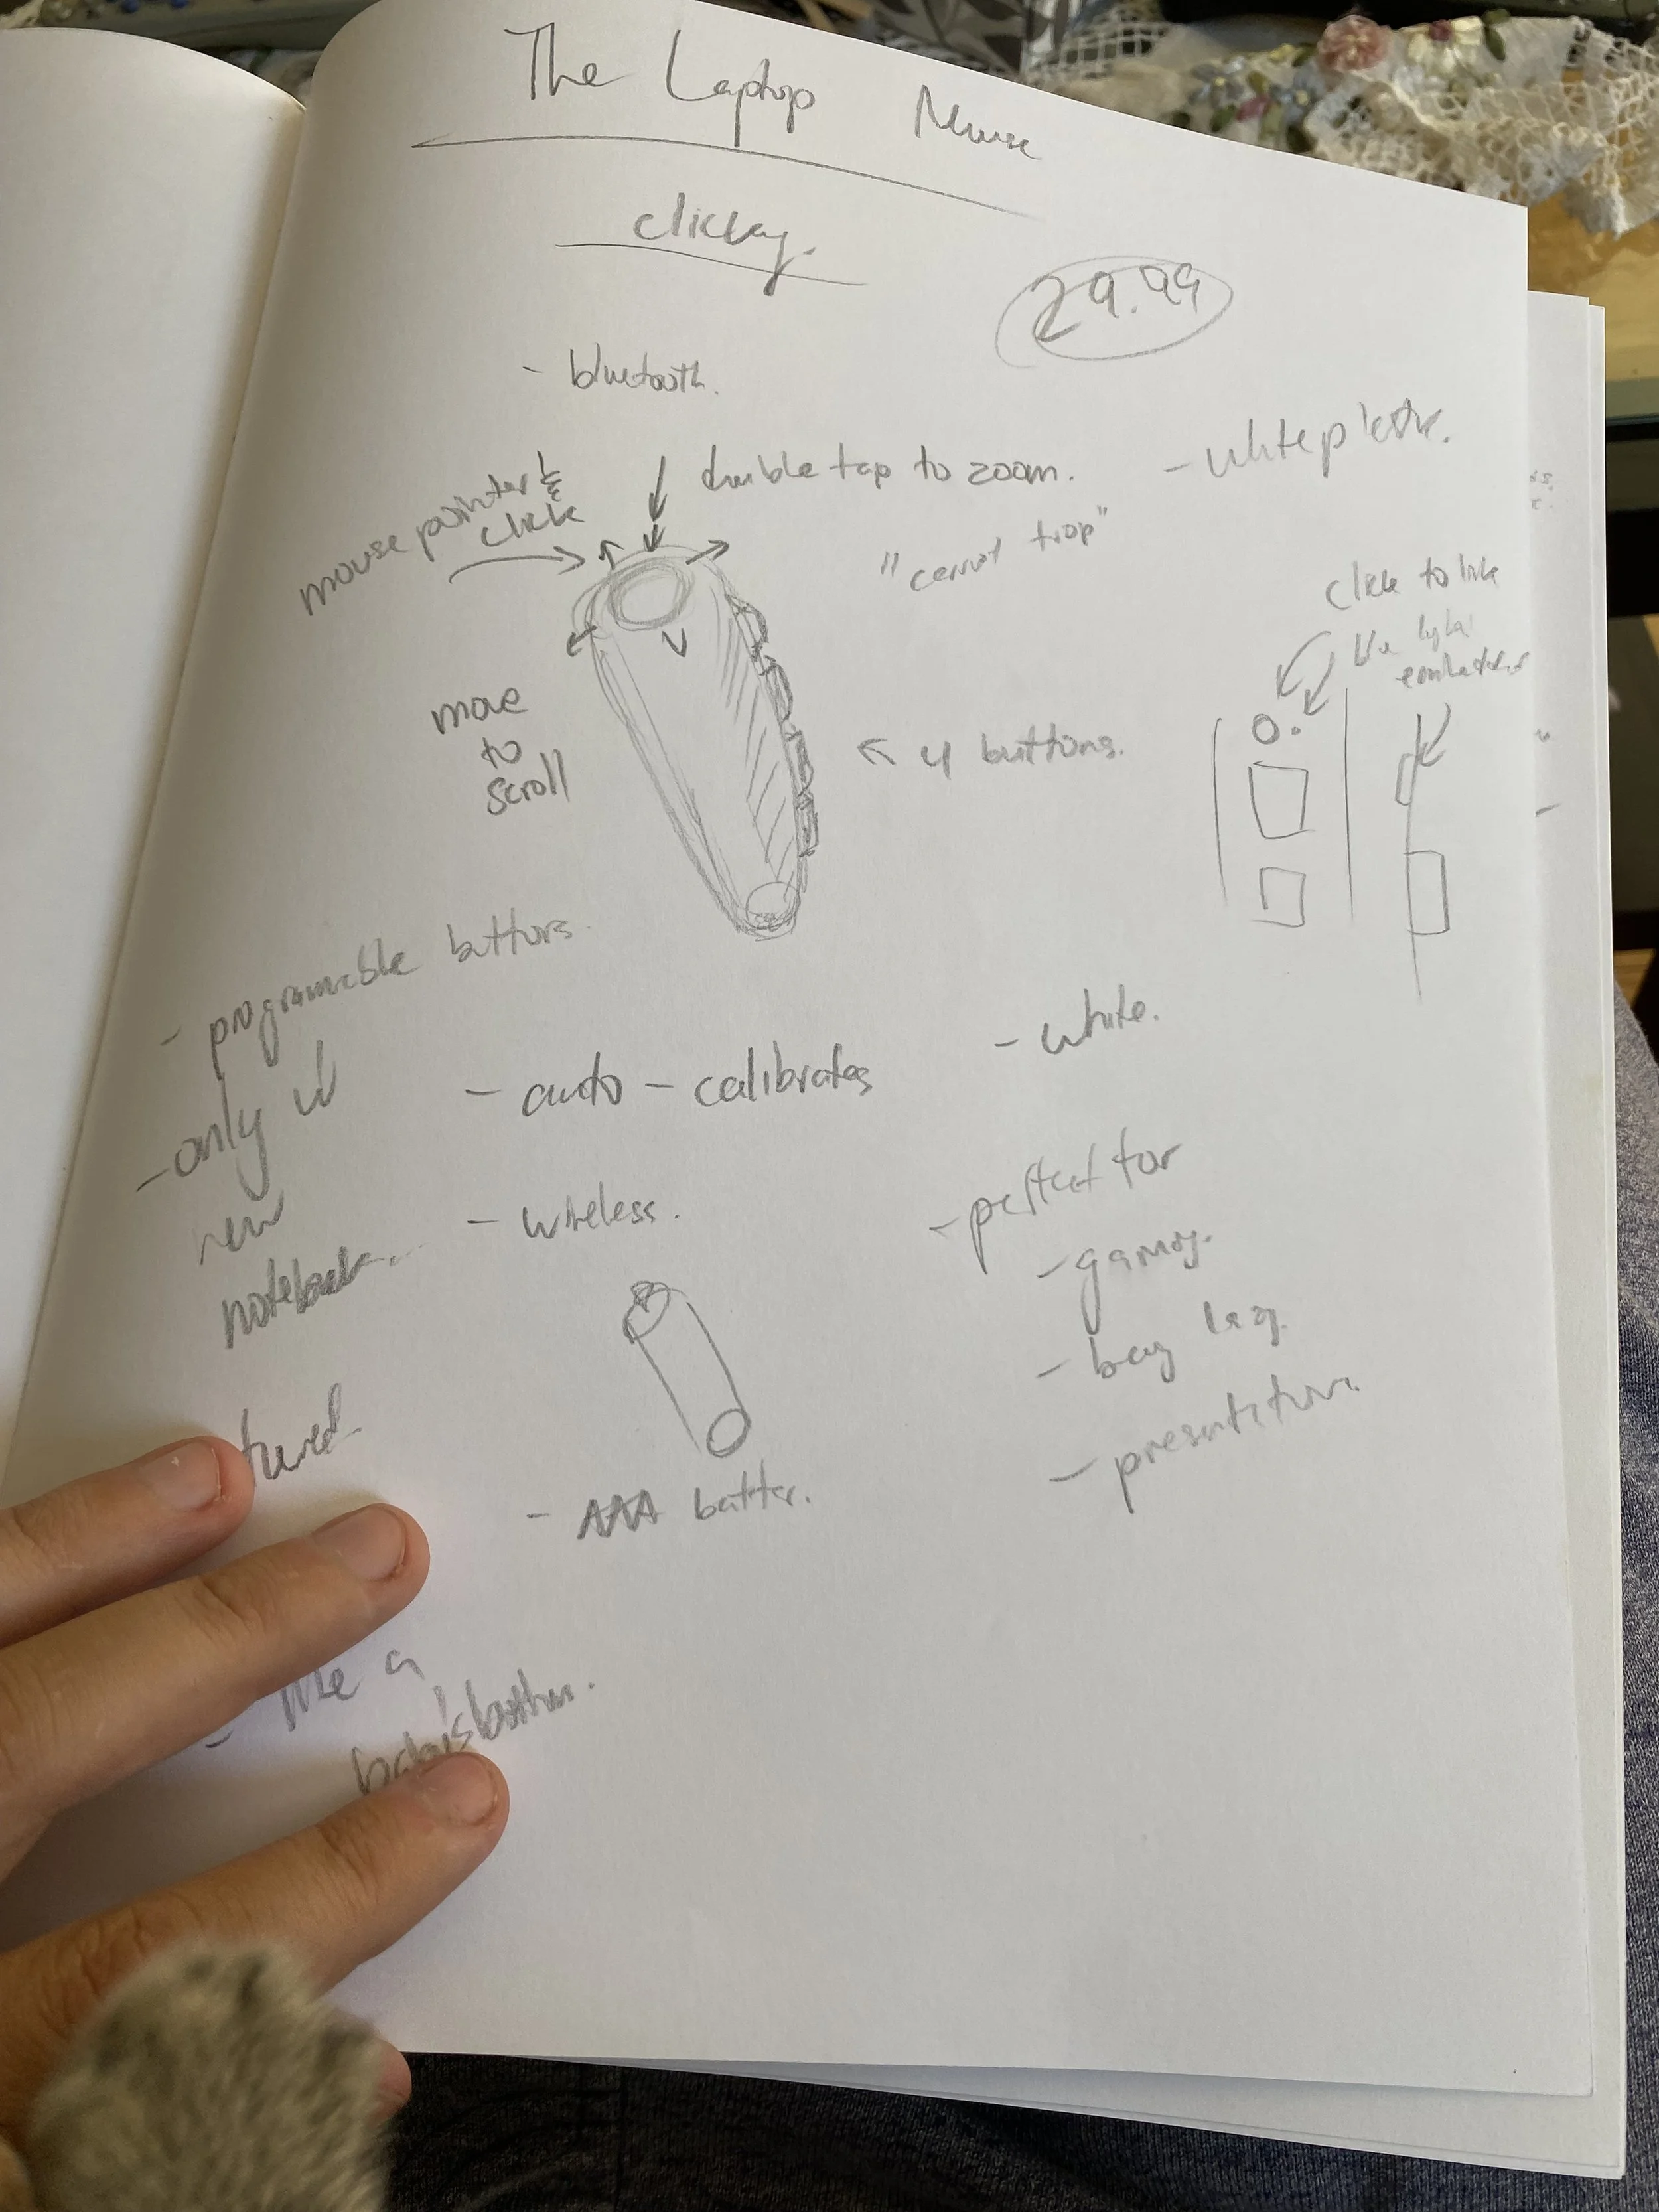 The Laptop Mouse
clicky.
29.99
- bluetooth.
double tap to zoom.
- white plastic.
mouse pointer &
click
"carrot trap"
click to link
blue light
move
to
scroll
4 buttons.
- programmable buttons.
- only w
new
notebook...
- auto-calibrates
- white.
- wireless.
- perfect for
- gaming.
- being lazy.
- presentation.
tured
- AAA batter.
- like a
baby's bottom.